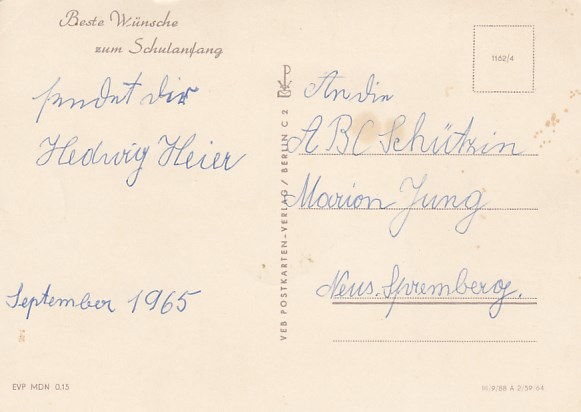 Beste Wünsche
zum Schulanfang
sendet dir
Hedwig Heier
September 1965
EVP MDN 0.15
VEB POSTKARTEN-VERLAG / BERLIN C 2
1162/4
An die
ABC Schützin
Marion Jung
Neus. Spremberg.
A 2/59/64